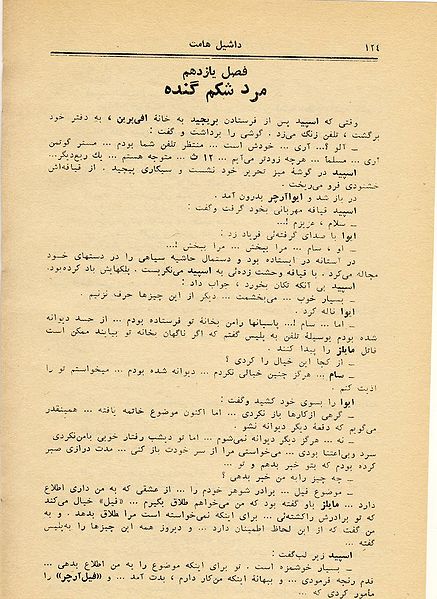 ۱۲٤
داشیل هامت
فصل یازدهم
مرد شکم گنده
وقتی که اسپید پس از فرستادن بریجید به خانهٔ افی‌پرین ، به دفتر خود
برگشت ، تلفن زنگ می‌زد . گوشی را برداشت و گفت :
– الو ؟... آری ... خودش است ... منتظر تلفن شما بودم ... مستر گوتمن
آری ... مسلماً ... هرچه زودتر می‌آیم ... ۱۲ ث ... متوجه هستم ... یك ربع‌دیگر...
اسپید در گوشهٔ میز تحریر خود نشست و سیگاری پیچید . از قیافه‌اش
خشنودی فرو می‌ریخت .
در باز شد و ایوا‌آرچر بدرون آمد .
اسپید قیافه مهربانی بخود گرفت وگفت :
– سلام ، عزیزم !...
ایوا با صدای گرفته‌ئی فریاد زد :
– او ، سام ... مرا ببخش ... مرا ببخش !...
در آستانه در ایستاده بود و دستمال حاشیه سیاهی را در دستهای خود
مچاله می‌کرد . با قیافه وحشت زده‌ئی به اسپید می‌نگریست . پلکهایش باد کرده‌بود.
اسپید بی آنکه تکان بخورد ، جواب داد :
– بسیار خوب ... می‌بخشمت ... دیگر از این چیزها حرف نزنیم
ایوا ناله کرد .
– اما ... سام !... پاسبانها رامن بخانهٔ تو فرستاده بودم ... از حسد دیوانه
شده بودم بوسیلهٔ تلفن به پلیس گفتم که اگر ناگهان بخانه تو بیایند ممکن است
قاتل مایلز را پیدا کنند .
– از کجا این خیال را کردی ؟
– سام ... هرگز چنین خیالی نکردم ... دیوانه شده بودم ... میخواستم تو را
اذیت کنم .
ایوا را بسوی خود کشید وگفت :
– گرهی ازکارها باز نکردی ... اما اکنون موضوع خاتمه یافته ... همینقدر
می‌گویم که دفعهٔ دیگر دیوانه نشو .
– نه ... هرگز دیگر دیوانه نمی‌شوم ... اما تو دیشب رفتار خوبی بامن‌نکردی
سرد وبی‌اعتنا بودی ... می‌خواستی مرا از سر خودت باز کنی ... مدت درازی صبر
کرده بودم که بتو خبر بدهم و تو ...
– چه چیز رابه من خبر بدهی ؟
– موضوع فیل ... برادر شوهر خودم را ... از عشقی که به من داری اطلاع
دارد ... مایلز باو گفته بود که من می‌خواهم طلاق بگیرم ... «فیل» خیال می‌کند
که تو برادرش راکشته‌ئی ... برای اینکه نمی‌خواسته است مرا طلاق بدهد . و به
من گفت که از این لحاظ اطمینان دارد ... و دیروز همه این چیزها را به‌پلیس
گفته ...
اسپید زیر لب‌گفت :
– بسیار خوشمزه است . تو برای اینکه موضوع را به من اطلاع بدهی ...
قدم رنجه فرمودی ... و ببهانهٔ اینکه من‌کار دارم ، بدت آمد ... و «فیل‌آرچر» را
مأمور کردی که ...